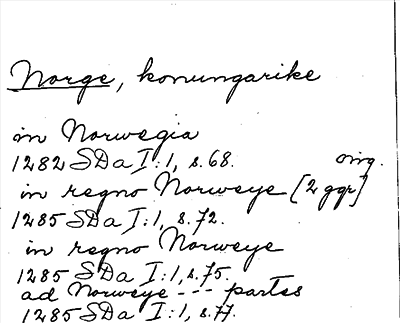 Norge, konungarike
in Norwegia
1282 SDa I:1, s.68. orig.
in regno Norweye [2 ggr]
1285 SDa I:1, s.72.
in regno Norweye
1285 SDa I:1, s.75.
ad Norweye --- partes
1285 SDa I:1, s.77.